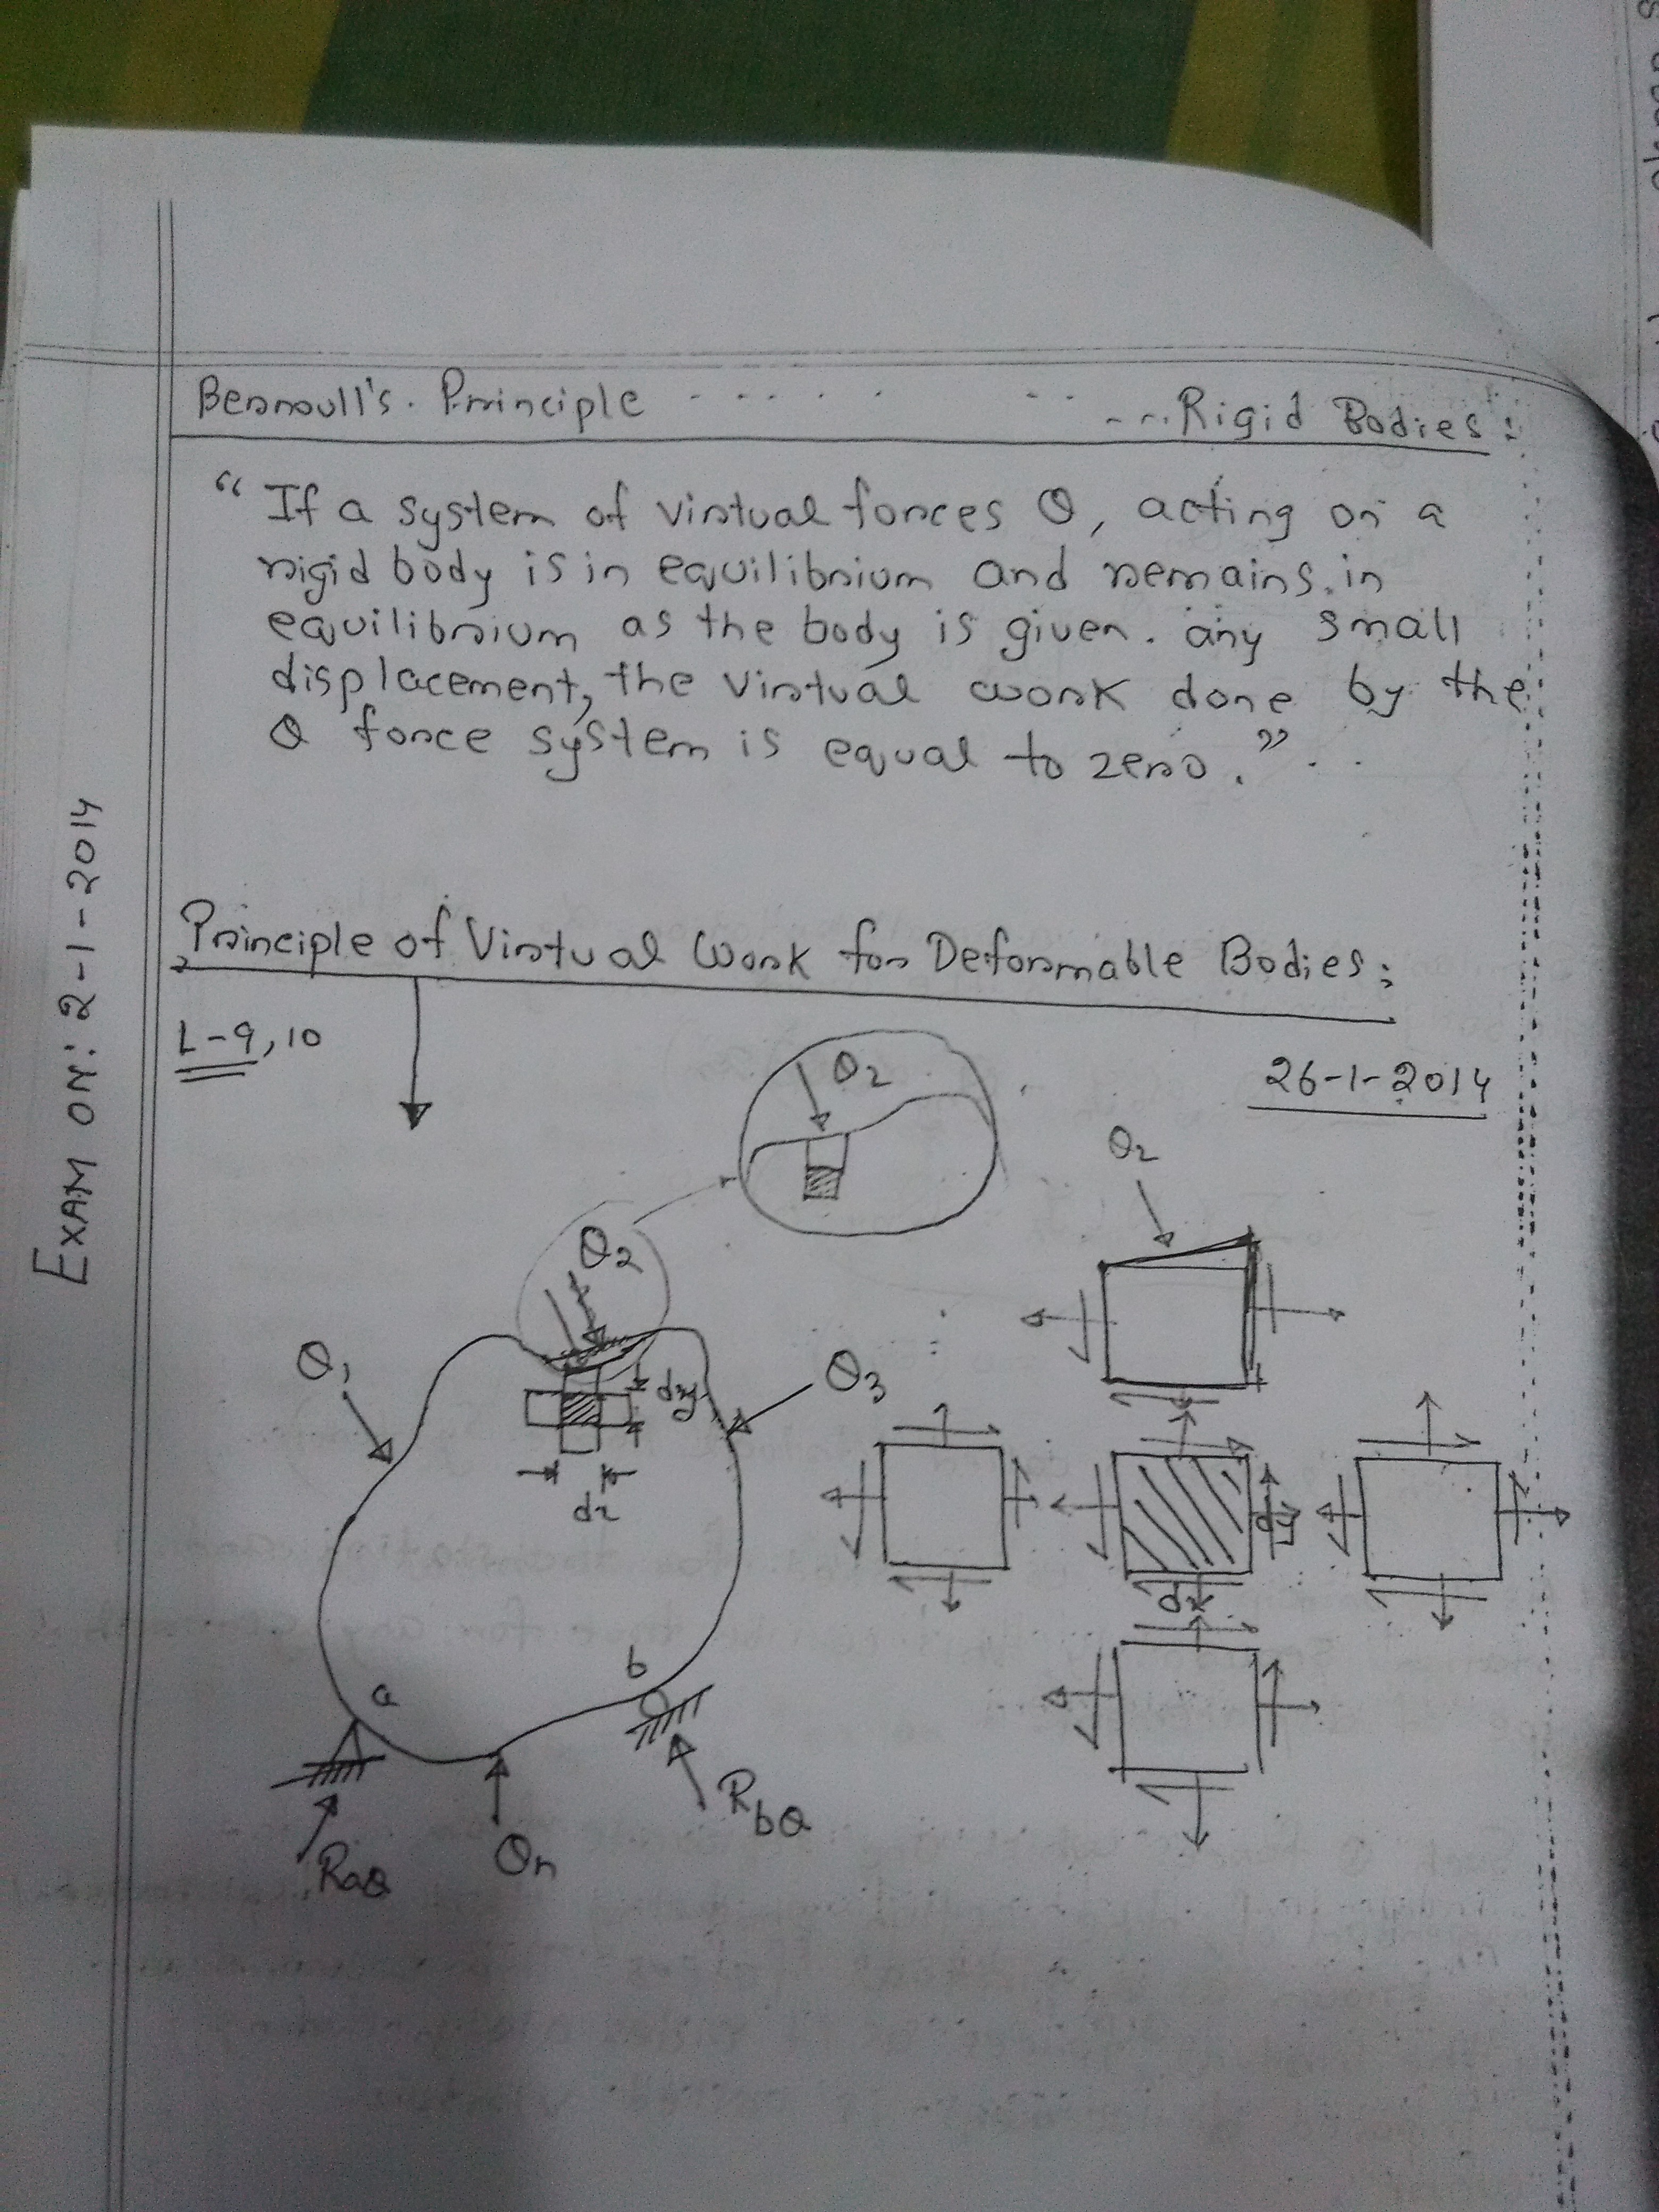 Bernoull's. Principle ..... .. ....Rigid Bodies:
"If a system of virtual forces Q, acting on a
rigid body is in equilibrium and remains in
equilibrium as the body is given. any small
displacement, the virtual work done by the
Q force system is equal to zero."
EXAM ON: 2-1-2014
Principle of Virtual Work for Deformable Bodies:
L-9,10
26-1-2014
Q2
Q2
Q2
Q1
Q3
dy
dx
dy
dx
a
b
RaQ
Qn
RbQ